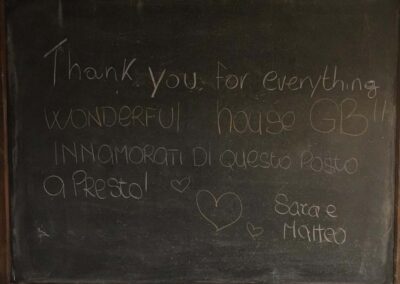 Thank you for everything
WONDERFUL house GB!!
INNAMORATI DI questo posto
a PRESTO!
Sara e
Matteo